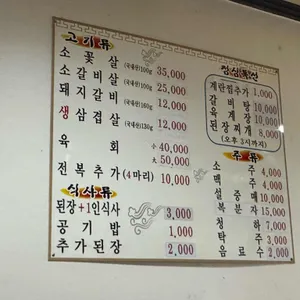 고기류
소꽃살 (국내산)100g 35,000
소갈비살 (국내산)100g 25,000
돼지갈비 (국내산)160g 12,000
생삼겹살 (국내산)130g 12,000
육회 小 40,000
大 50,000
전복추가 (4마리) 10,000
식사류
된장+1인식사 3,000
공기밥 1,000
추가된장 2,000
점심특선
계란찜추가 1,000
갈비탕 10,000
육계장 10,000
된장찌개 8,000
(오후 3시까지)
주류
소주 4,000
맥주 4,000
설중매 10,000
복분자 15,000
청하 7,000
탁주 3,000
음료수 2,000